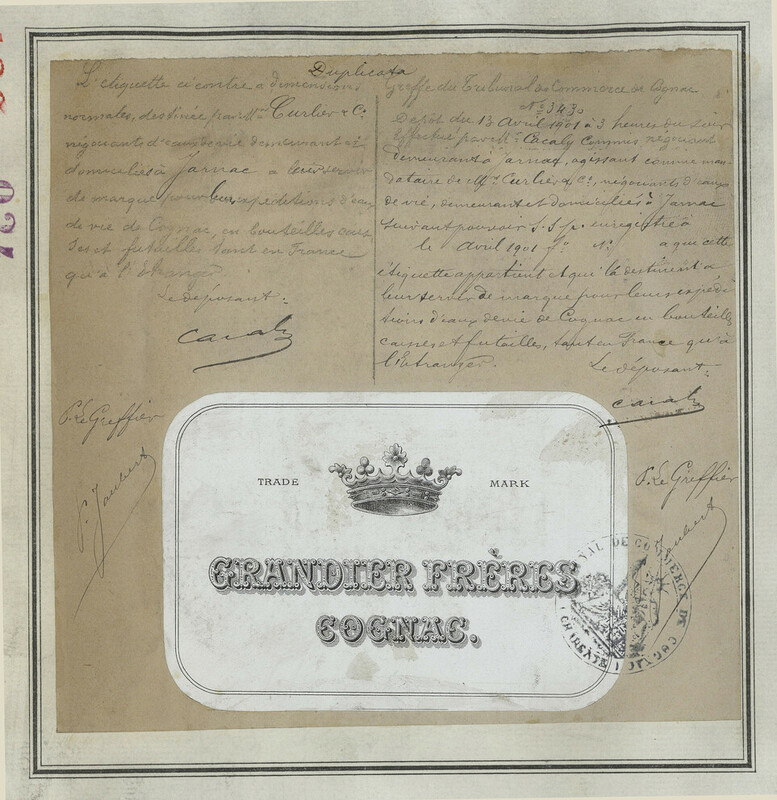 Duplicata
L'étiquette ci contre a dimensions
normales, destinée par MM. Curlier & Cie
négociants d'eaux de vie demeurant et
domiciliés à Jarnac a leur servir
de marque pour leurs expéditions d'eaux
de vie de Cognac, en bouteilles cais
ses et futailles tant en France
qu'à l'Etranger
Le déposant:
Cacaly
P. Le Greffier
P. Jaubert
Greffe du Tribunal de Commerce de Cognac
No 3430
Dépôt du 13 Avril 1901 à 3 heures du soir
Effectué par M. Cacaly Commis négociant
Demeurant à Jarnac, agissant comme man-
dataire de MM. Curlier & Cie, négociants d'eaux
de vie, demeurant et domiciliés à Jarnac
suivant pouvoir S.S.p. enregistré à
le Avril 1901 fo No a que cette
étiquette appartient et qu'ils la destinent à
leur servir de marque pour leurs expédi
tions d'eaux de vie de Cognac en bouteilles
caisses et futailles, tant en France qu'à
l'Etranger.
Le déposant:
Cacaly
P. Le Greffier
Jaubert
TRADE MARK
GRANDIER FRÈRES
COGNAC.
NAL DE COMMERCE DE COGNAC
CHARENTE